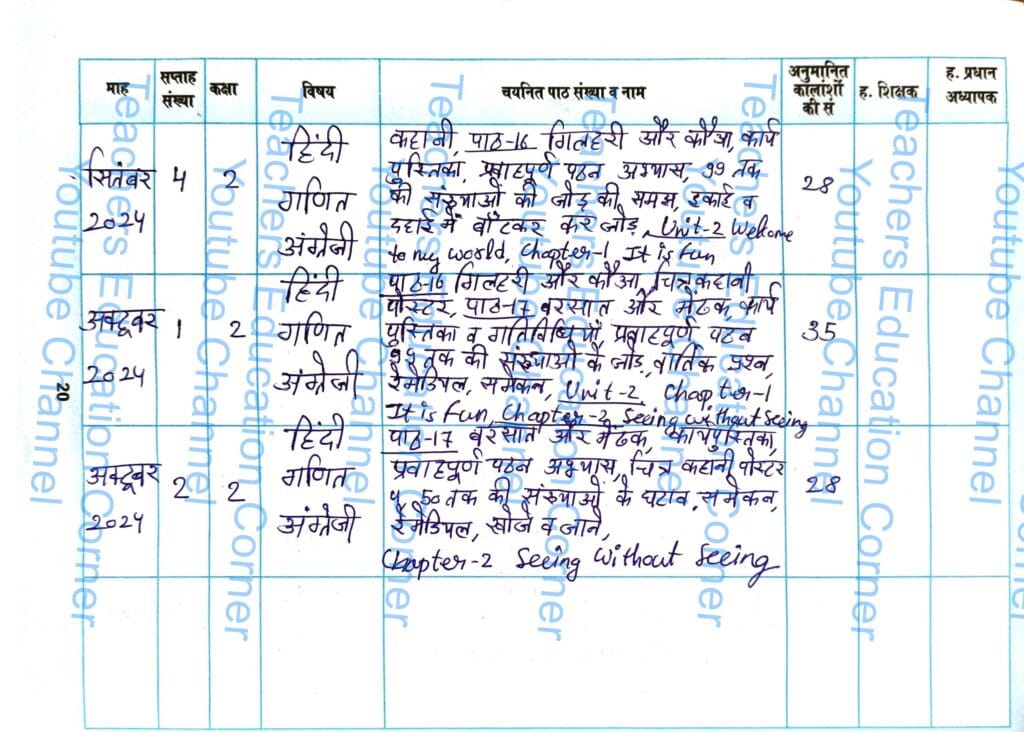 माह सप्ताह संख्या कक्षा विषय चयनित पाठ संख्या व नाम अनुमानित कालांशों की सं ह. शिक्षक ह. प्रधान अध्यापक
सितंबर 2024 4 2
हिंदी
गणित
अंग्रेजी
कहानी, पाठ-16 गिलहरी और कौआ, कार्य
पुस्तिका, प्रवाहपूर्ण पठन अभ्यास, 99 तक
की संख्याओं की जोड़ की समझ, इकाई व
दहाई में बाँटकर कर जोड़, Unit-2 Welcome
to my world, Chapter-1 It is fun
28
अक्टूबर 2024 1 2
हिंदी
गणित
अंग्रेजी
पाठ-16 गिलहरी और कौआ, चित्र कहानी
पोस्टर, पाठ-17 बरसात और मेंढक, कार्य
पुस्तिका व गतिविधियाँ, प्रवाहपूर्ण पठन
99 तक की संख्याओं के जोड़, वार्तिक प्रश्न,
रेमेडियल, समेकन, Unit-2 Chapter-1
It is fun, Chapter-2 Seeing without Seeing
35
अक्टूबर 2024 2 2
हिंदी
गणित
अंग्रेजी
पाठ-17 बरसात और मेंढक, कार्यपुस्तिका,
प्रवाहपूर्ण पठन अभ्यास, चित्र कहानी पोस्टर
50 तक की संख्याओं के घटाव, समेकन,
रेमेडियल, खोजें व जानें,
Chapter-2 Seeing Without Seeing
28
20
Teachers Education Corner
Youtube Channel
Teachers Education Corner
Youtube Channel
Teachers Education Corner
Youtube Channel
Teachers Education Corner
Youtube Channel